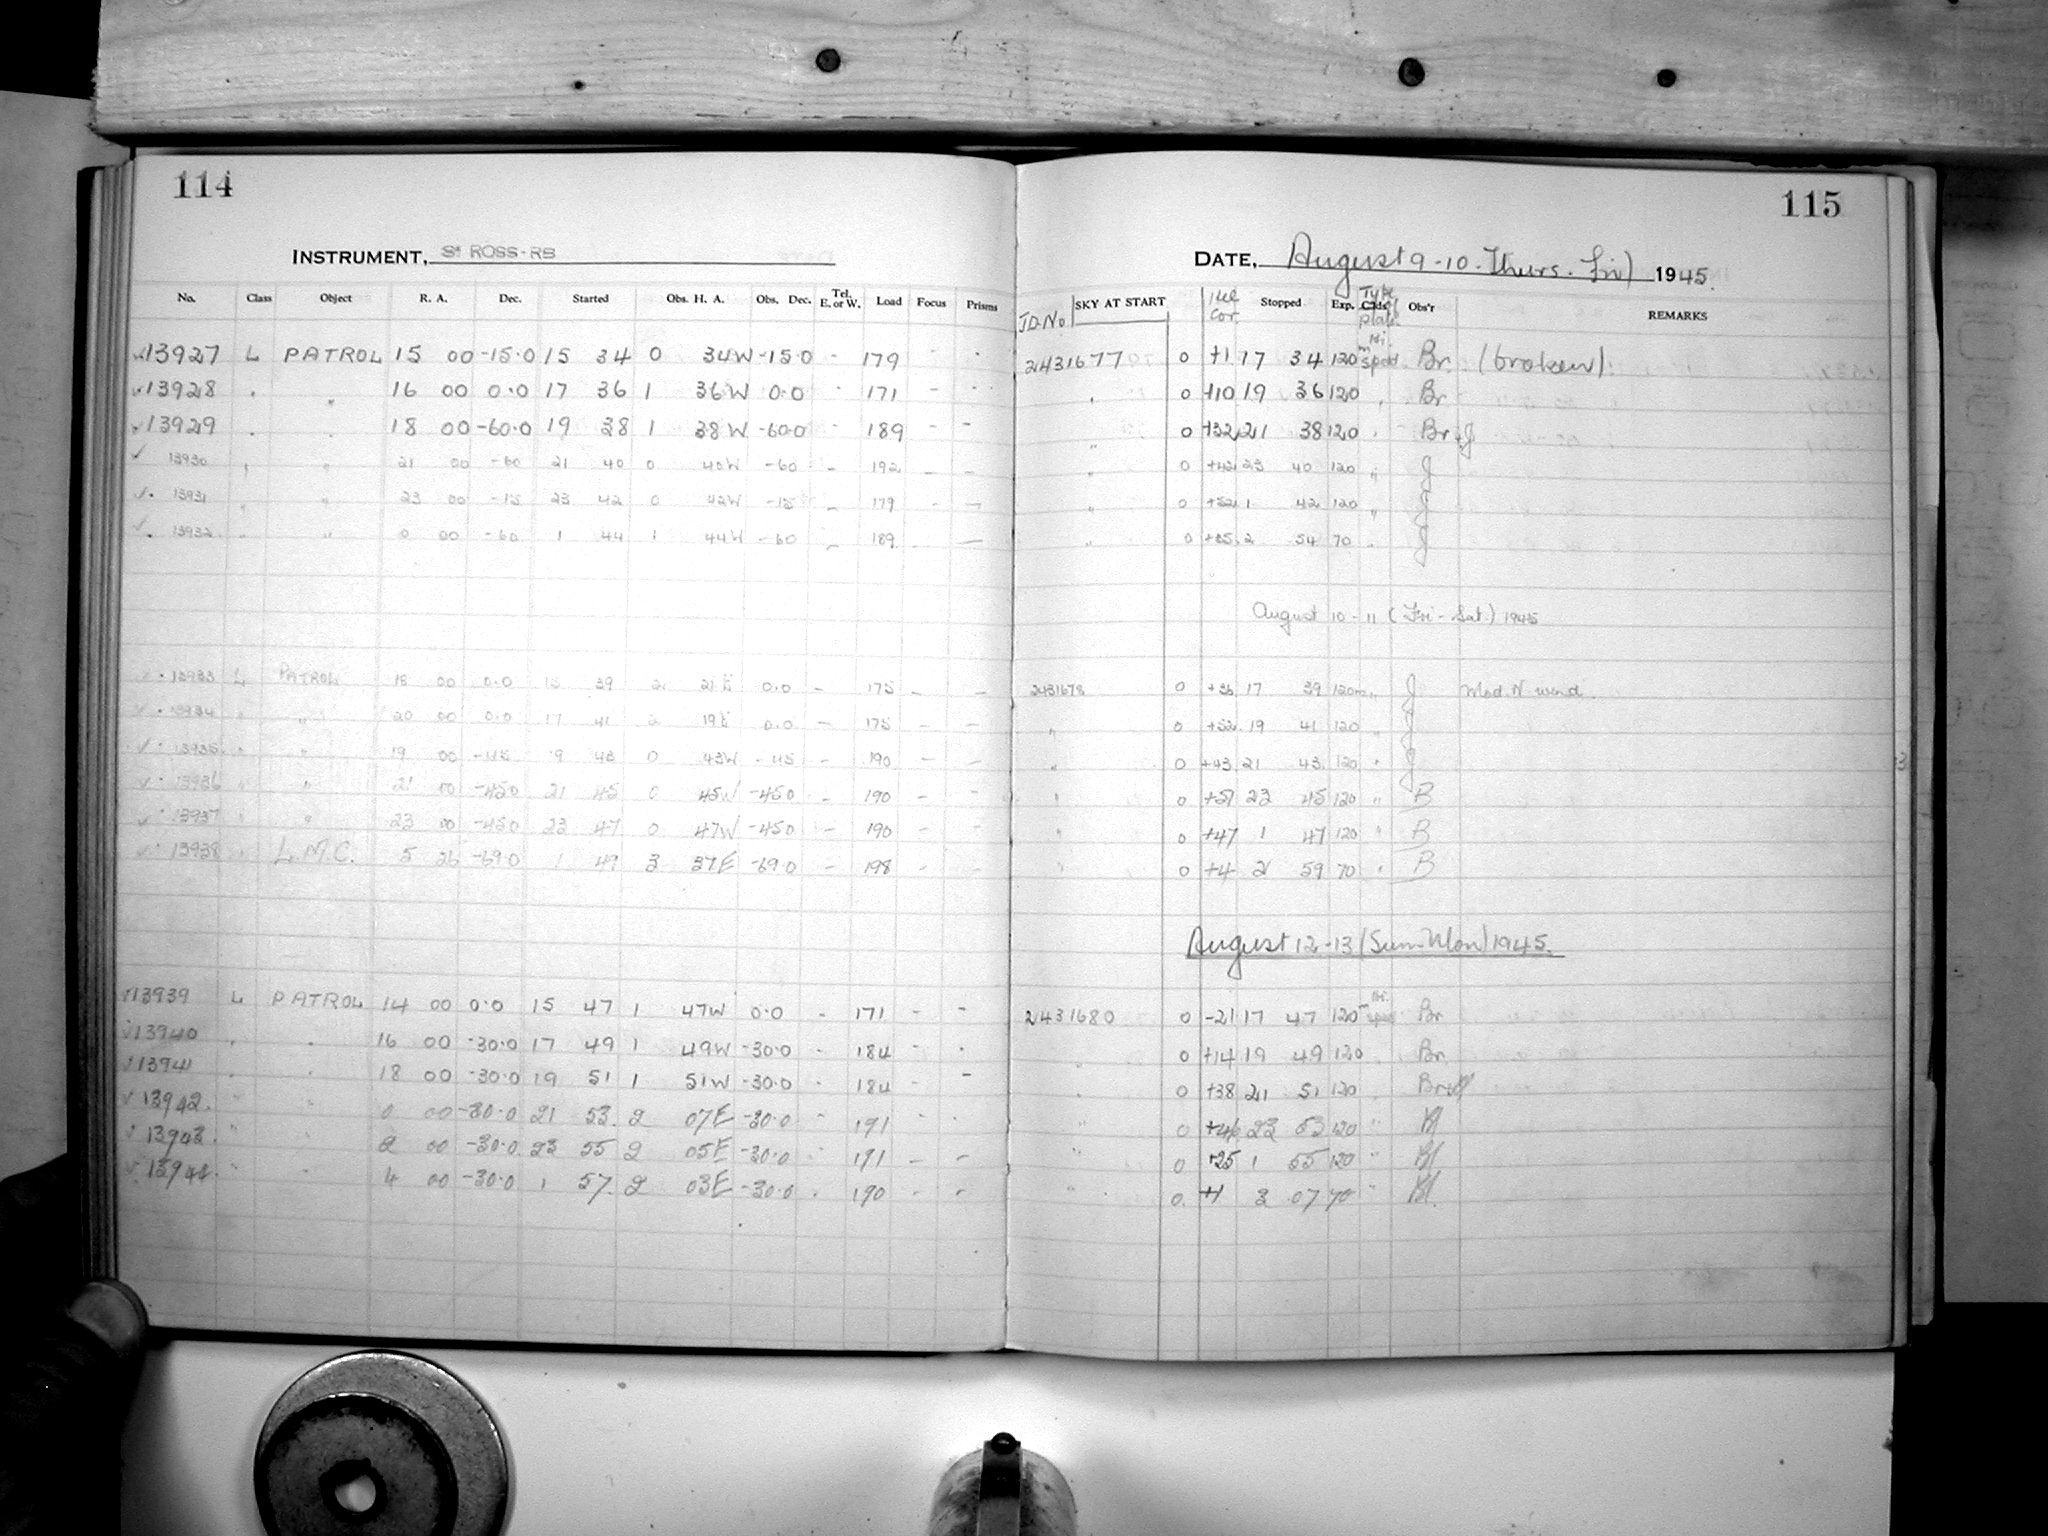 114
115
INSTRUMENT, ROSS-RB
DATE, August 9-10-Thurs. Fri) 1945.
No. Class Object R. A. Dec. Started Obs. H. A. Obs. Dec. Tel. E. or W. Load Focus Prisms JD.No SKY AT START Cor. Stopped Exp. Type of plate Obs'r REMARKS
13927 L PATROL 15 00 -15.0 15 34 0 34W -15.0 - 179 - - 2431677 0 +1 17 34 120 Br. (broken)
13928 . " 16 00 0.0 17 36 1 36W 0.0 - 171 - - " 0 +10 19 36 120 " Br
13929 . . 18 00 -60.0 19 38 1 38W -60.0 - 189 - - " 0 +32 21 38 120 " Br+J
13930 " " 21 00 -60 21 40 0 40W -60 - 192 - - " 0 +42 23 40 120 " J
13931 " " 23 00 -15 23 42 0 42W -15 - 179 - - " 0 +52 1 42 120 " J
13932 " " 0 00 -60 1 44 1 44W -60 - 189 - " 0 2 54 70 " J
August 10-11 (Fri-Sat.) 1945
13933 L PATROL 18 00 0.0 15 39 2 21E 0.0 - 175 - - 2431678 0 +36 17 39 120m " J Mod. N wind.
13934 " " 20 00 0.0 17 41 2 19E 0.0 - 175 - - " 0 +52 19 41 120 " J
13935 " " 19 00 -45 19 43 0 43W -45 - 190 - - " 0 +43 21 43 120 " J
13936 " " 21 00 -45.0 21 45 0 45W -45.0 - 190 - - " 0 +57 23 45 120 " B
13937 " " 23 00 -45.0 23 47 0 47W -45.0 - 190 - - " 0 +47 1 47 120 " B
13938 " L.M.C. 5 26 -69.0 1 49 3 37E -69.0 - 198 - - " 0 +4 2 59 70 " B
August 12-13 (Sun-Mon) 1945.
13939 L PATROL 14 00 0.0 15 47 1 47W 0.0 - 171 - - 2431680 0 -21 17 47 120 Br
13940 . . 16 00 -30.0 17 49 1 49W -30.0 - 184 - . " 0 +14 19 49 120 Br.
13941 . . 18 00 -30.0 19 51 1 51W -30.0 - 184 - - " 0 +38 21 51 120 "
13942. " " 0 00 -30.0 21 53 2 07E -30.0 - 191 - - " 0 +46 23 53 120 " Bl
13943. " " 2 00 -30.0 23 55 2 05E -30.0 - 191 - - " 0 +25 1 55 120 " Bl
13944. " " 4 00 -30.0 1 57 2 03E -30.0 - 190 - - " 0 +1 3 07 70 " Bl.